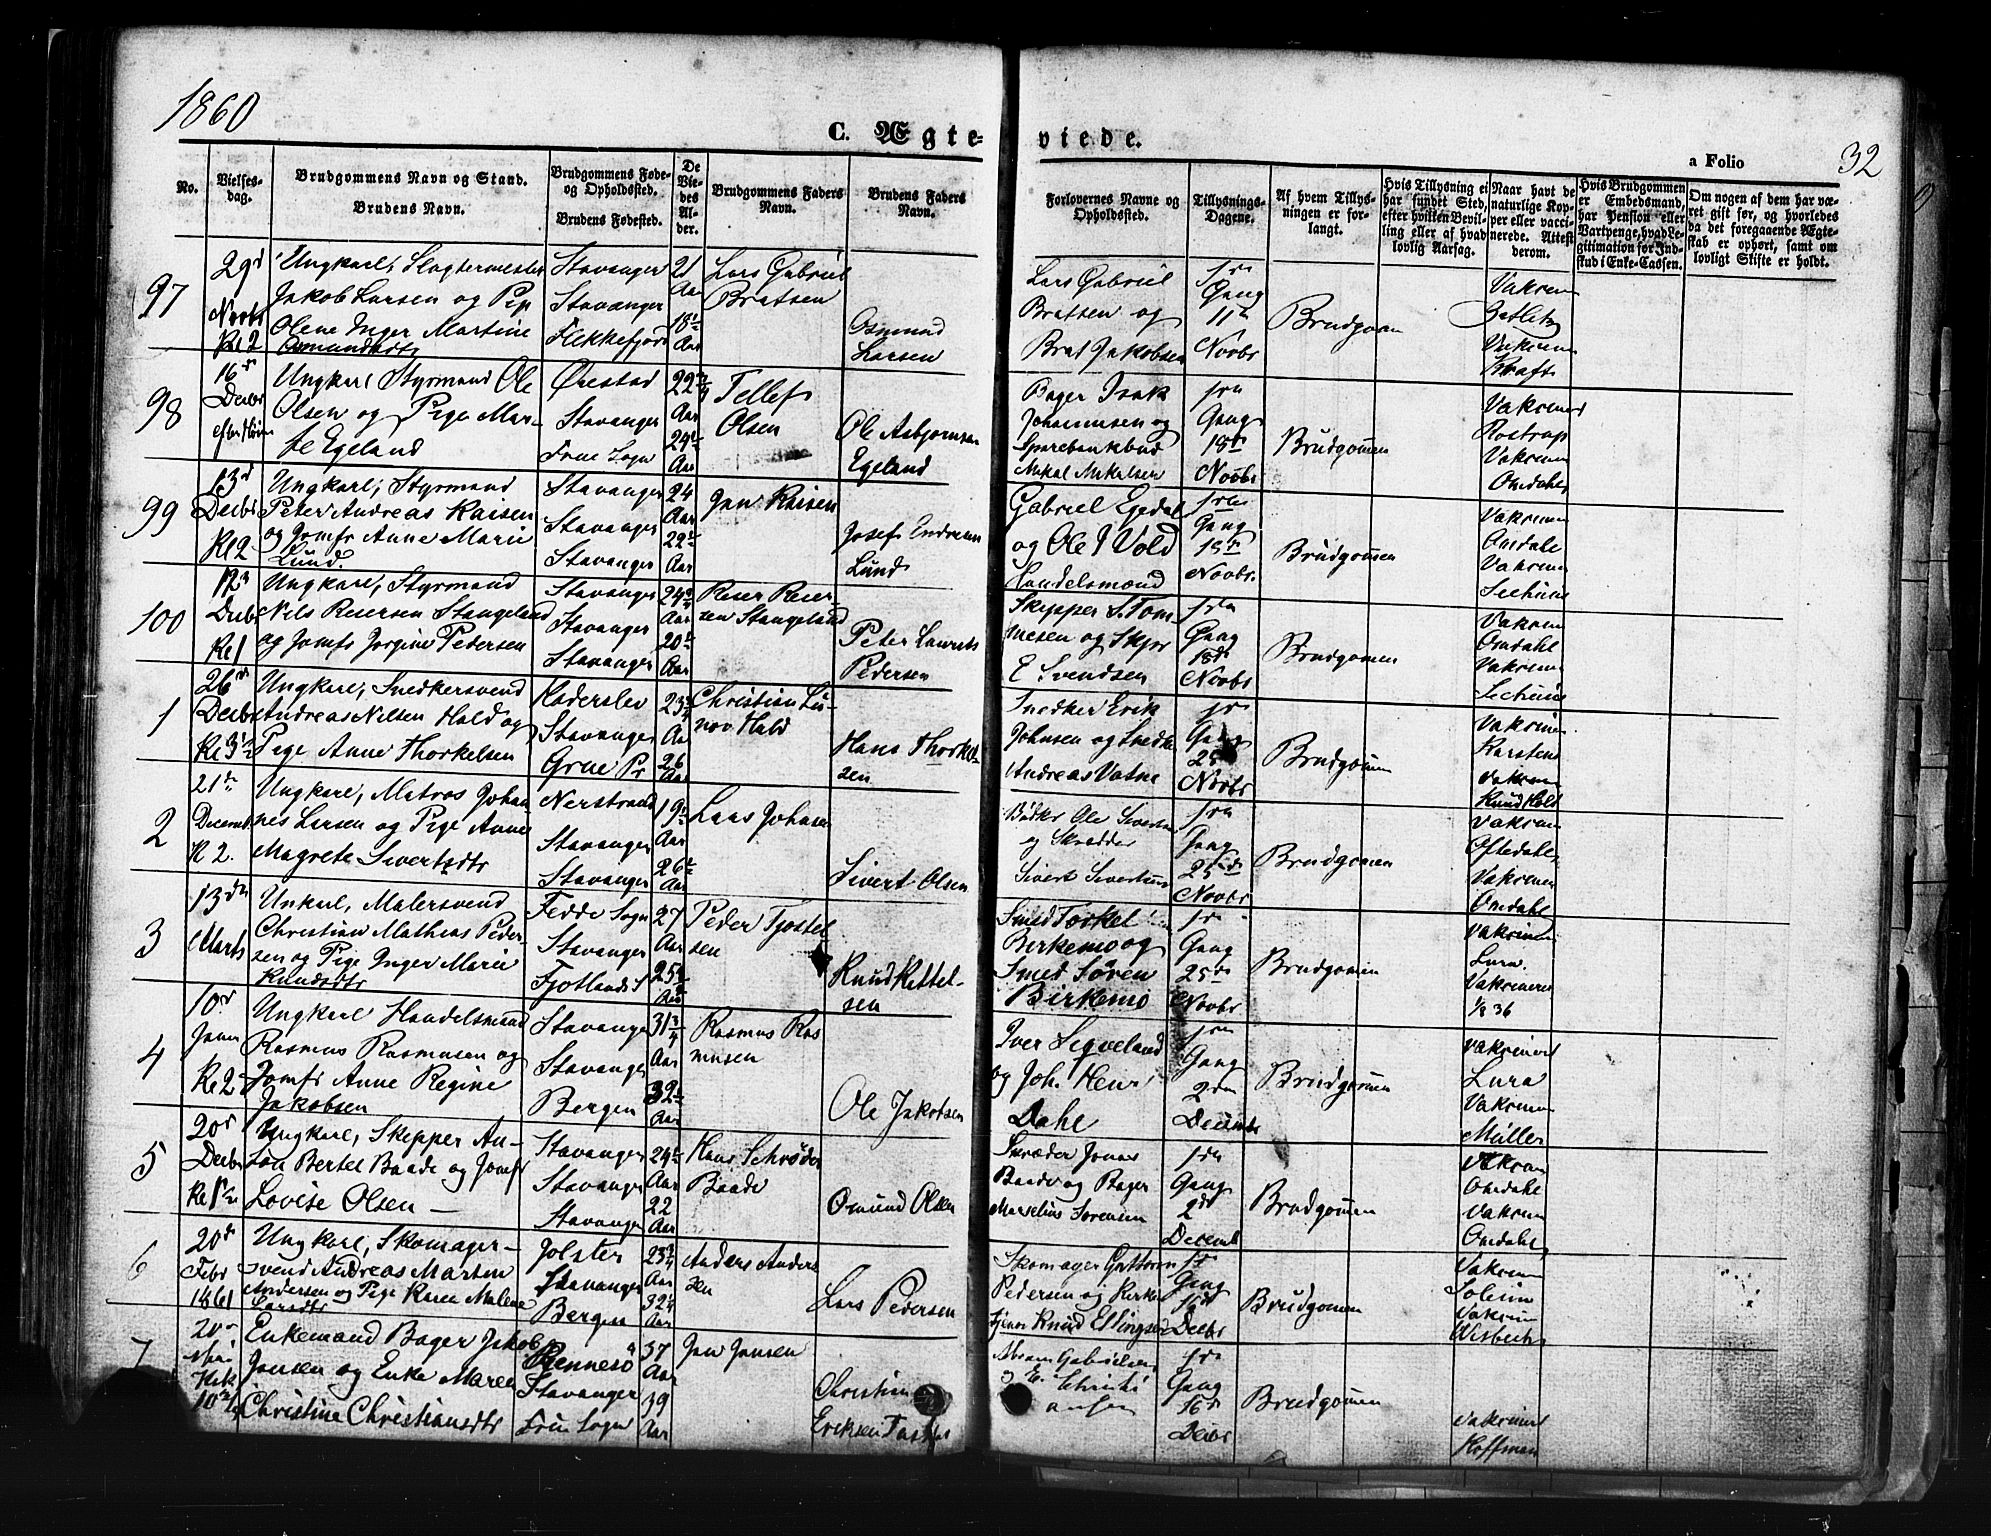 1860
C. Ægte-
viede.
a Folio
32
No.
Vielses-
dag.
Brudgommens Navn og Stand.
Brudens Navn.
Brudgommens Føde-
og Opholdssted.
Brudens Fødested.
De
Vie-
des
Al-
der.
Brudgommens Faders
Navn.
Brudens Faders
Navn.
Forlovernes Navne og
Opholdssted.
Tillysnings-
Dagene.
Af hvem Tillys-
ningen er for-
langt.
Hvis Tillysning ei
har fundet Sted,
efter hvilken Bevil-
ling eller af hvad
lovlig Aarsag.
Naar havt de
naturlige Kop-
per eller vacci-
nerede. Attest
derom.
Hvis Brudgommen
er Embedsmand,
har Pension eller
Vartpenge, hvad Le-
gitimation for Ind-
skud i Enke-Cassen.
Om nogen af dem har væ-
ret gift før, og hvorledes
da det foregaaende Ægte-
skab er ophørt, samt om
lovligt Skifte er holdt.
97
29d
Novbr
Kl 2
Ungkarl, Slagtermester
Jakob Larsen og Pige
Olene Inger Martine
Osmundsdtr
Stavanger
Stavanger
Flekkefjord
21
Aar
18½
Aar
Lars Gabriel
Bratsen
Osmund
Larsen
Lars Gabriel
Bratsen og
Brat Jakobsen
fra
Gang
11te
Novbr
Brudgom
Vakcin
Vakcin
Kraft
98
16d
Decbr
Ungkarl Styrmand Ole
Olsen og Pige Mar-
the Egeland
Stavanger
Frue Sogn
22¾
Aar
24½
Aar
Tellef
Olsen
Ole Asbjørnsen
Egeland
Bager Isak
Johannesen og
Sparebankbud
Mikal Mikalsen
fra
Gang
18de
Novbr
Brudgommen
Vakcinerd
Rostrup
Vakcin
Omdahl
99
13d
Decbr
Kl 2
Ungkarl, Styrmand
Peter Andreas Kaisen
og Jomfr Anne Marie
Lund.
Stavanger
Stavanger
Stavanger
24
Aar
22½
Aar
Jan Kaisen
Josef Endresen
Lund
Gabriel Egedal
og Ole J Vold
Handelsmænd
fra
Gang
18de
Novbr.
Brudgommen
Vakcin
Omdahl
Vakcin
100
12d
Decbr
Kl 1
Ungkarl, Styrmand
Nils Reiersen Stangeland
og Jomfr Jorgine Pedersen
Stavanger
Stavanger
Stavanger
24¾
Aar
20½
Aar
Reier Reier-
sen Stangeland
Peter Laurits
Pedersen
Skipper S. Tom-
mesen og Skipr
E. Svendsen
fra
Gang
18de
Novbr
Brudgomen
Vakcin
Omdahl
Vakcin
1
26d
Decbr
Kl 3½
Ungkarl, Snedkersvend
Andreas Nilsen Hald og
Pige Anne Thorkelsen
Haderslev
Stavanger
Grue Pr
23¾
Aar
26
Aar
Christian Lu-
nov Hald
Hans Thorkel-
sen
Snedker Erik
Johnsen og Snedk
Andreas Vatne
fr
Gang
25
Novbr
Brudgommen
Vakcin
Karstens
Vakcin
Knud Hold
2
21de
Decemb
Kl 2.
Ungkarl, Matros Johan
nes Larsen og Pige Anne
Magrete Sivertsdtr
Nerstrand
Stavanger
Stavanger
19½
Aar
26½
Aar
Lars Johnsen
Sivert Olsen
Bødker Ole Sivertsen
og Skrædder
Sivert Sivertsen
fra
Gang
25de
Novbr
Brudgommen
Vakcin
Oftedahl
Vakcin
Omdahl
3
13de
Marts
Unkarl, Malersvend
Christian Mathias Peder-
sen og Pige Inger Marie
Knudsdtr
Fedde Sogn
Stavanger
Fjotlands S
27
Aar
25¾
Aar
Peder Tjostel
sen
Knud Kettel-
sen
Smed Torkel
Birkemo og
Smed Søren
Birkemo
fr
Gang
25de
Novbr
Brudgommen
Vakcin
Lura.
Vakcinerd
1/8 36
4
10d
Janr
Kl 2
Ungkarl Handelsmand
Rasmus Rasmusen og
Jomfr Anne Regine
Jakobsen
Stavanger
Stavanger
Bergen
31¾
Aar
32½
Aar
Rasmus Ras
musen
Ole Jakobsen
Iver Sigveland
og Joh. Henr
Dahl
fra
Gang
2den
Decembr
Brudgommen
Vakcinerd
Lura
Vakcin
Müller
5
20d
Decbr
Ungkarl, Skipper An-
ton Bertel Baade og Jomfr
Lovise Olsen
Stavanger
Stavanger
Stavanger
24½
Aar
22
Aar
Hans Schrøder
Baade
Osmund Olsen
Skræder Jonas
Baade og Bager
Marselius Sørensen
fra
Gang
2d
Decemb
Brudgommen
Vakcin
Omdahl
Vakcin
Omdahl
6
20d
Febr
1861
Ungkarl, Skomager-
svend Andreas Marten
Andersen og Pige Karen Malene
Larsdtr
Jølster
Stavanger
Bergen
23¾
Aar
32¼
Aar
Anders Anders
sen
Lars Pedersen
Skomager Guttorm
Pedersen og Kirke
tjener Knud Ellingsen
fr
Gang
16d
Decbr
Brudgommen
Vakcin
Vakcin
Wisbech
7
20
Mai
Enkemand Bager Jakob
Jansen og Enke Maren
Christine Christiansdtr
Rennesö
Stavanger
Frue Sogn
37
Aar
39
Aar
Jan Jansen
Christian
Eriksen
Abram Gabrielsen
og E. Christi
ansen
fra
Gang
16d
Decbr
Brudgommen
Vakcinerd
Hoffman